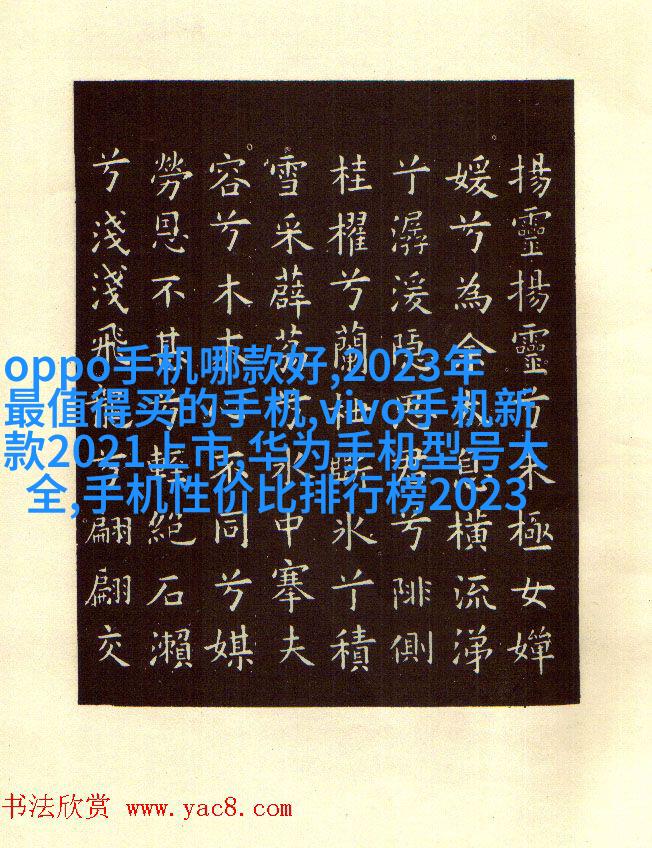 揚靈揚靈兮未極女嬋
媛兮為余太息橫流涕
兮潺湲隱思君兮陫側
桂櫂兮蘭枻斲氷兮積
雪采薜荔兮水中搴夫
容兮木末心不同兮媒
勞恩不甚兮輕絕石瀨
兮淺淺飛龍兮翩翩交
oppo手机哪款好,2023年
最值得买的手机,vivo手机新
款2021上市,华为手机型号大
全,手机性价比排行榜2023
书法欣赏 www.yac8.com